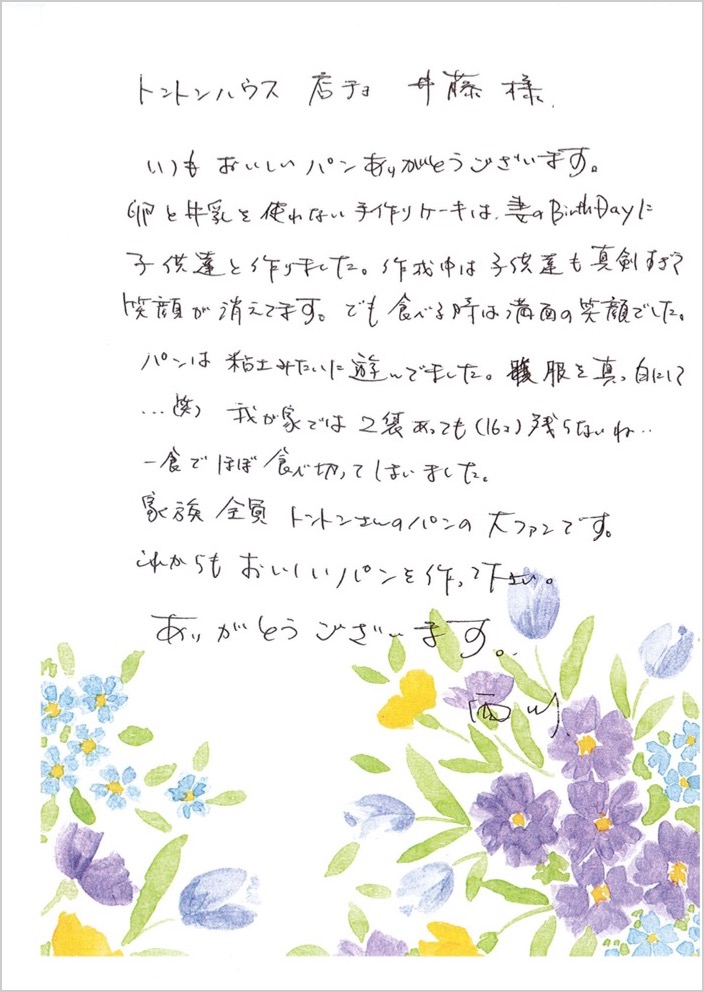 トントンハウス 店チョ 井藤 様、
いつも おいしい パン ありがとうございます。
卵と牛乳を使わない手作りケーキは、妻のBirthDayに
子供達と作りました。作成中は子供達も真剣すぎて
笑顔が消えてます。でも食べる時は満面の笑顔でした。
パンは 粘土みたいに遊んでました。服を真っ白にして
…(笑) 我が家では 2袋あっても(16コ)残らないね…
一食でほぼ食べ切ってしまいました。
家族 全員 トントンさんのパンの 大ファンです。
これからも おいしいパンを作って下さい。
ありがとうございます。
西川